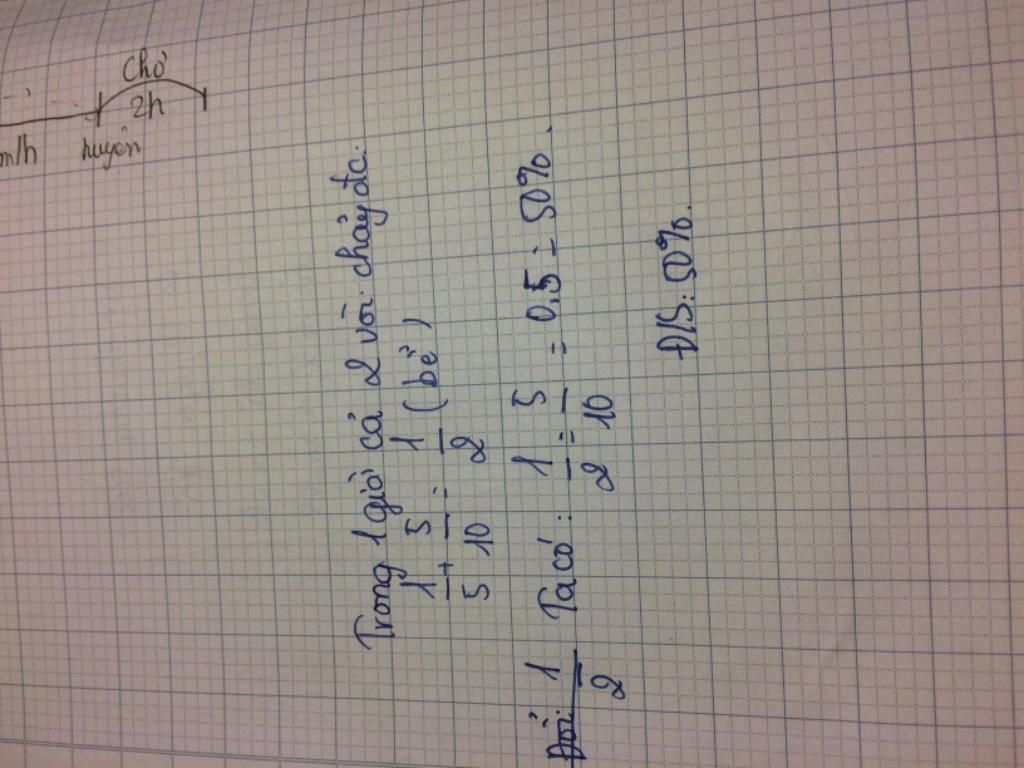 2h
huyện
Trong 1 giờ cả 2 vòi chảy đc.
1/5 + 3/10 = 1/2 (bể)
Đổi: 1/2 Ta có: 1/2 = 5/10 = 0,5 = 50%.
Đ/S: 50%.